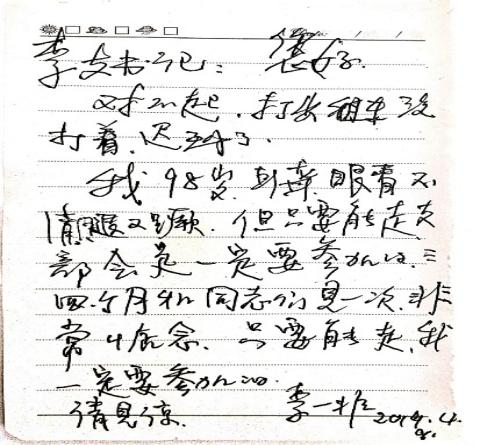 李支书记：您好.
对不起，打出租车没
打着，迟到了.
我98岁，耳聋、眼看不
清，腿又瘸. 但只要能走支
部会是一定要参加的. 三
四个月和同志们见一次，非
常惦念. 只要能走，我
一定要参加的.
请见谅.
李一非 2019.4.